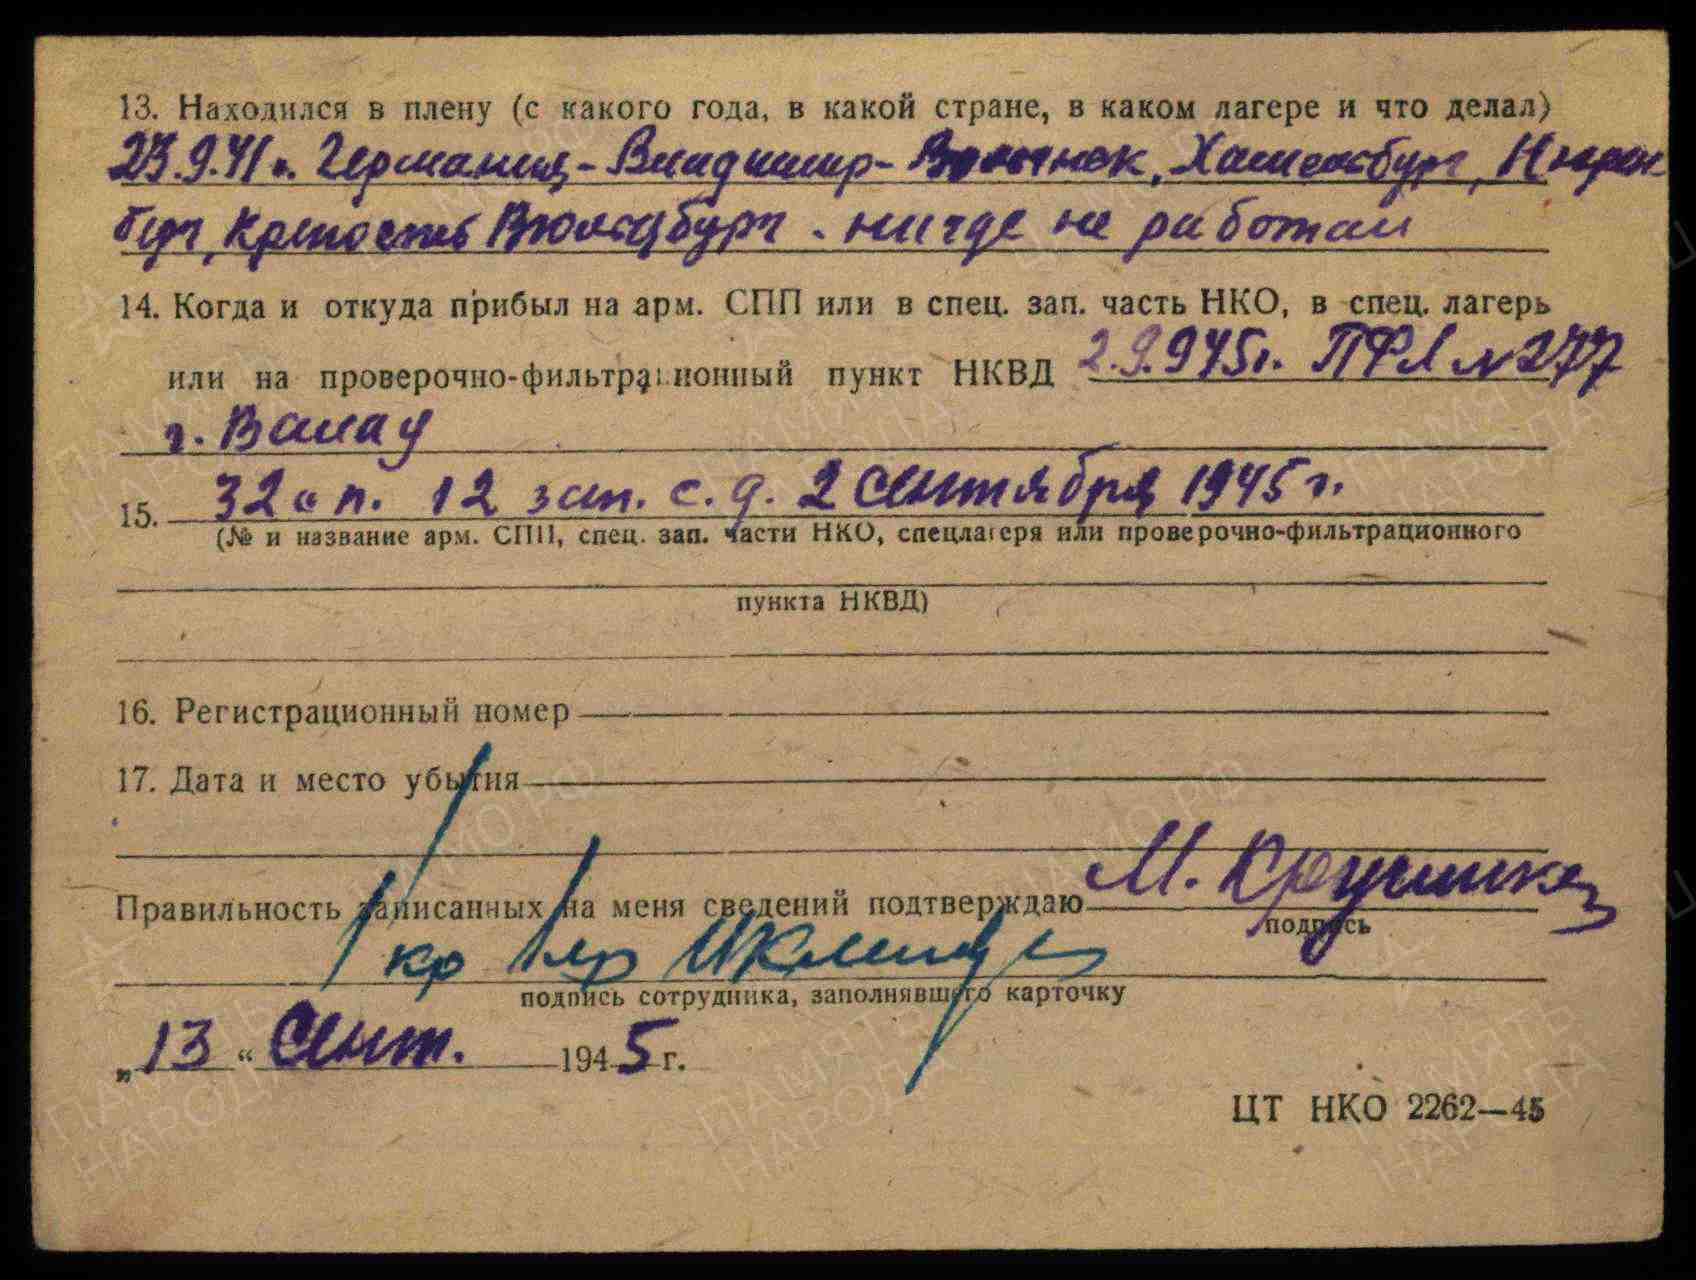 13. Находился в плену (с какого года, в какой стране, в каком лагере и что делал)
23.9.41г. Германия - Владимир - Волынск, Хаммельбург, Нюрен-
бург, Крепость Вюльцбург. нигде не работал
14. Когда и откуда прибыл на арм. СПП или в спец. зап. часть НКО, в спец. лагерь
или на проверочно-фильтрационный пункт НКВД 2.9.945г. ПФЛ №277
г. Валау
15. 32 сп. 12 зап. с. д. 2 сентября 1945 г.
(№ и название арм. СПП, спец. зап. части НКО, спецлагеря или проверочно-фильтрационного
пункта НКВД)
16. Регистрационный номер
17. Дата и место убытия
Правильность записанных на меня сведений подтверждаю М.
подпись
подпись сотрудника, заполнявшего карточку
„13“ Сент. 1945 г.
ЦТ НКО 2262—45
ПАМЯТЬ НАРОДА